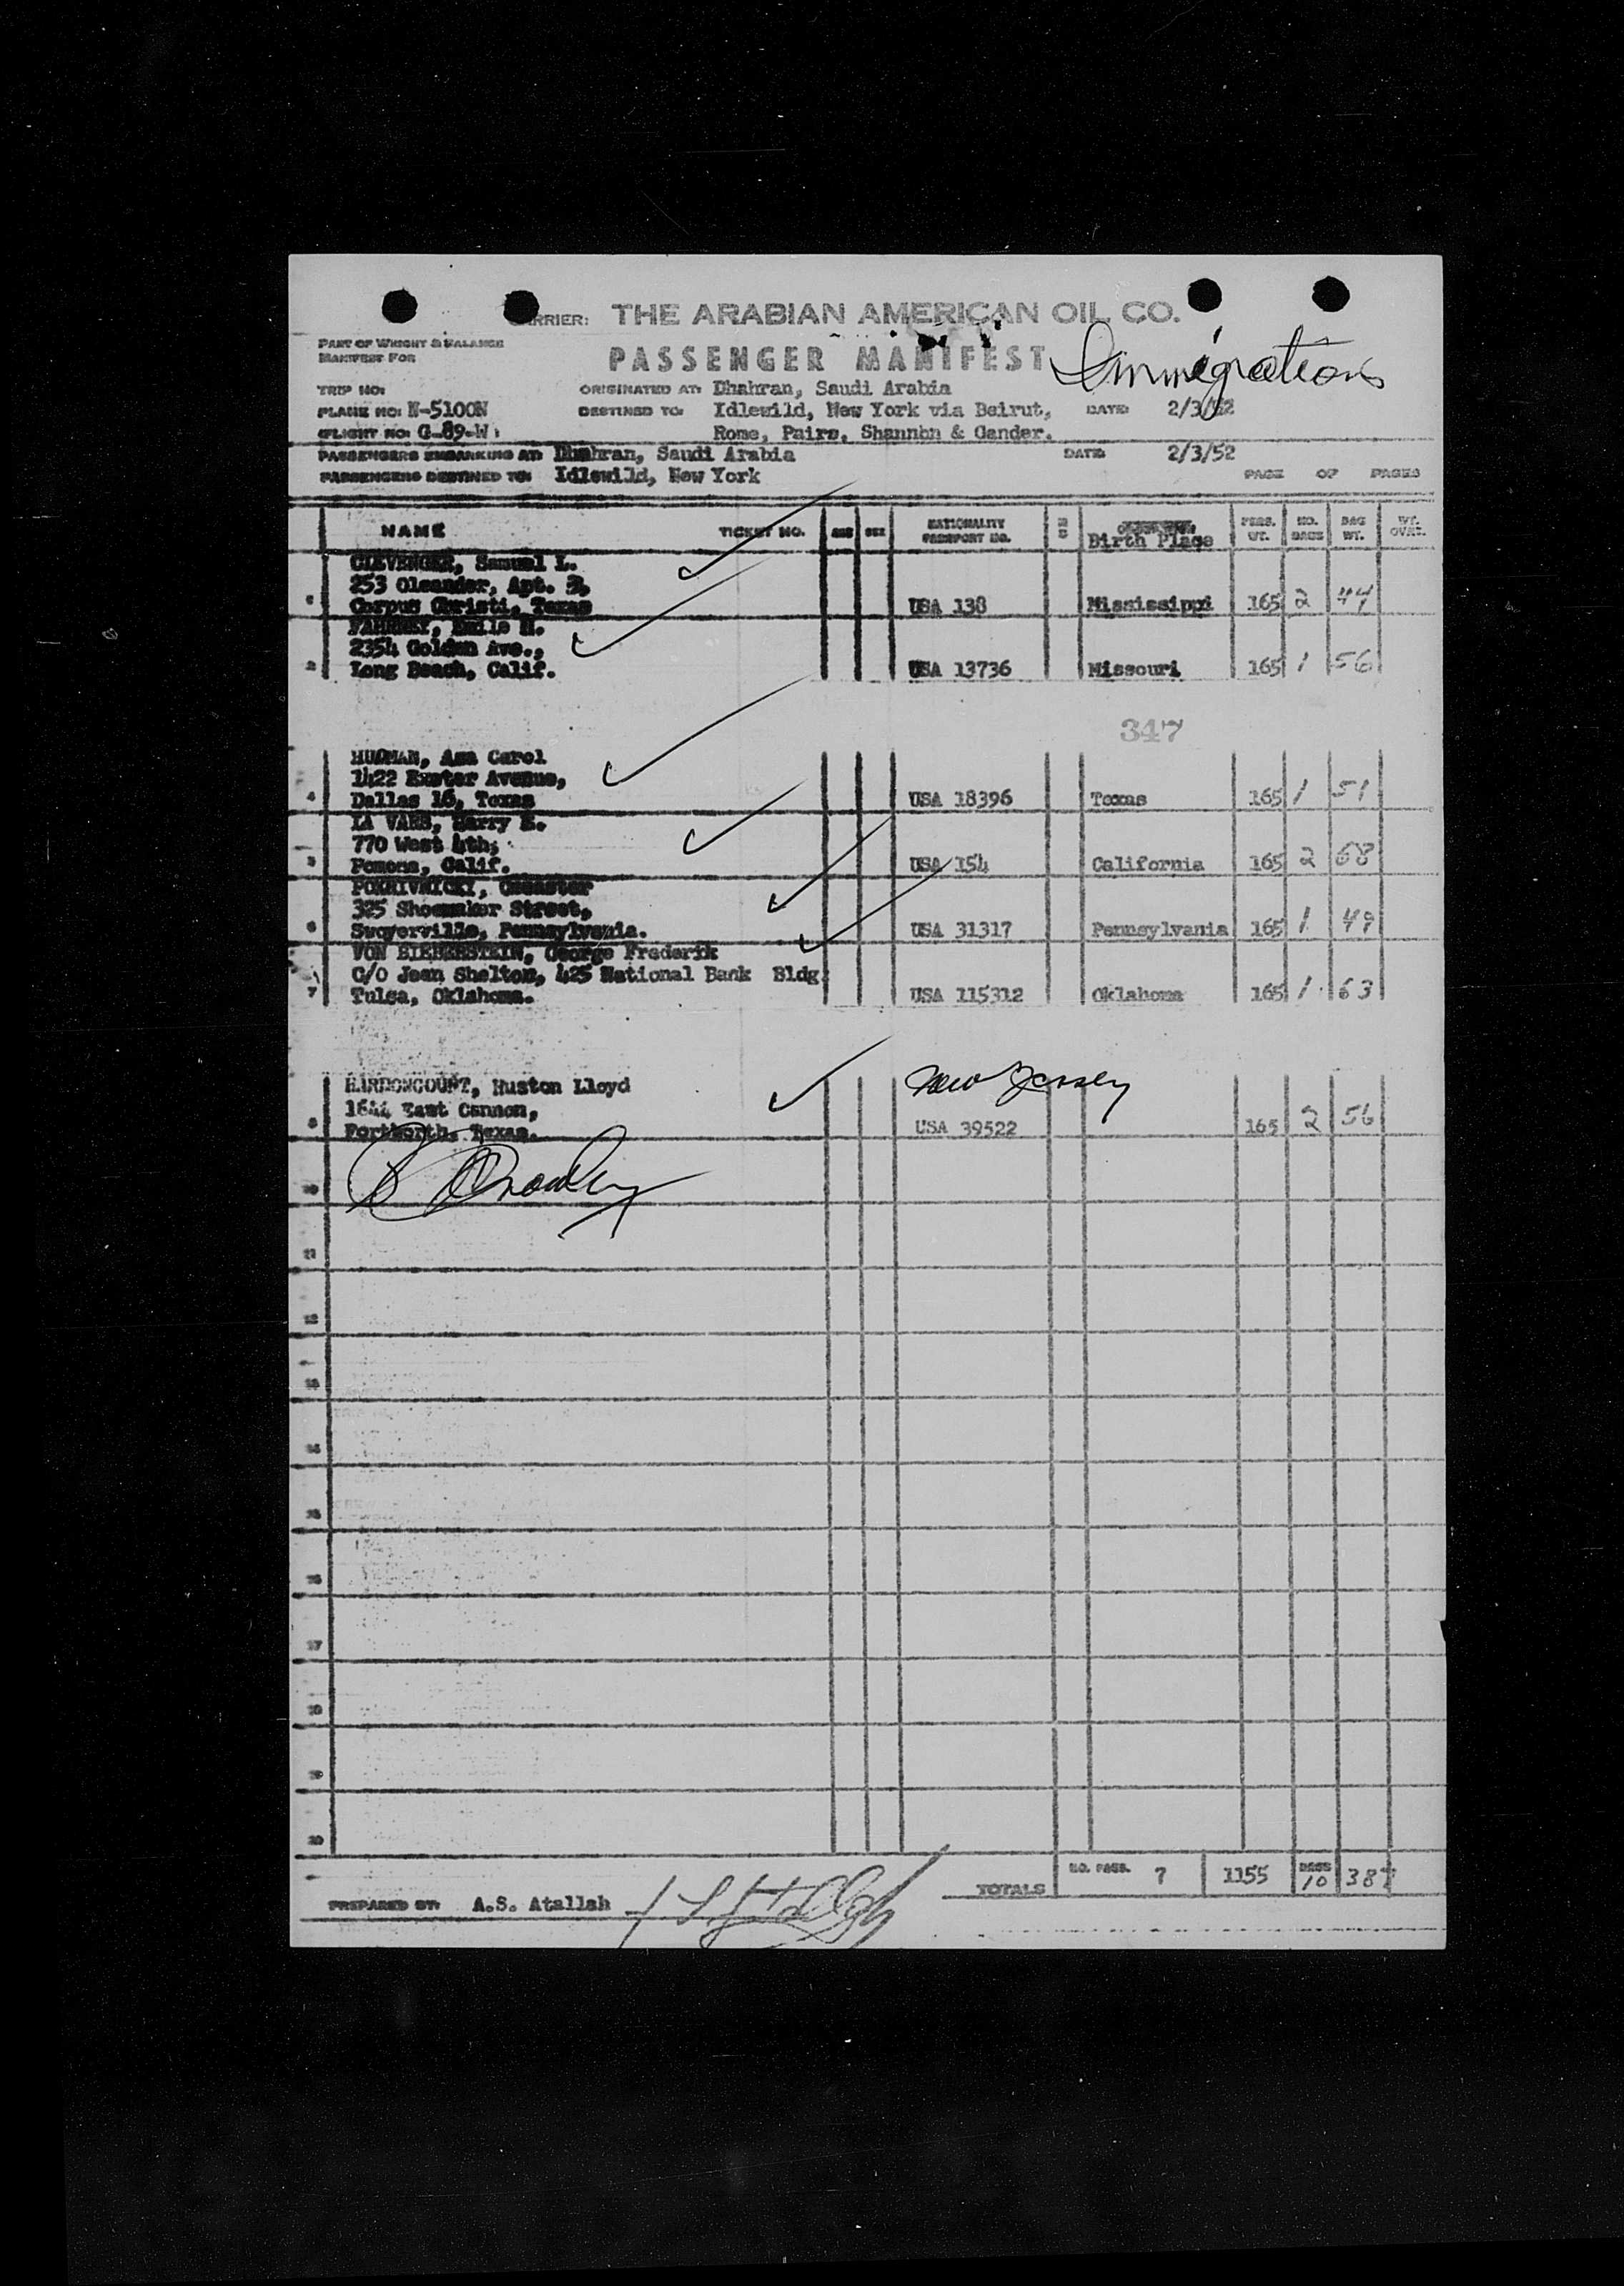 CARRIER: THE ARABIAN AMERICAN OIL CO.
PART OF WEIGHT & BALANCE
MANIFEST FOR
PASSENGER MANIFEST
Immigrations
TRIP NO:
ORIGINATED AT: Dhahran, Saudi Arabia
PLANE NO: N-5100N
DESTINED TO: Idlewild, New York via Beirut, DATE: 2/3/52
FLIGHT NO: G-89-W
Rome, Pairs, Shannon & Gander.
PASSENGERS EMBARKING AT: Dhahran, Saudi Arabia DATE: 2/3/52
PASSENGERS DESTINED TO: Idlewild, New York PAGE OF PAGES
NAME TICKET NO. AGE SEX NATIONALITY PASSPORT NO. Birth Place PERS. WT. NO. BAGS BAG WT. WT. OVRT.
CLEVENGER, Samuel L.
253 Oleander, Apt. 3,
1 Corpus Christi, Texas USA 138 Mississippi 165 2 44
Emile H.
2354 Golden Ave.,
2 Long Beach, Calif. USA 13736 Missouri 165 1 56
347
Asa Carol
1422 Exeter Avenue,
4 Dallas 16, Texas USA 18396 Texas 165 1 51
LA VARS, Harry E.
770 West 4th;
5 Pomona, Calif. USA 154 California 165 2 68
POKRIVNICKY,
325 Shoemaker Street,
6 Swoyerville, Pennsylvania. USA 31317 Pennsylvania 165 1 49
VON BIEBERSTEIN, George Frederik
C/o Jean Shelton, 425 National Bank Bldg.
7 Tulsa, Oklahoma. USA 115312 Oklahoma 165 1 63
HARDONCOURT, Huston Lloyd New Jersey
1644 East Cannon,
8 Fortworth, Texas. USA 39522 165 2 56
10
11
12
13
14
15
16
17
18
19
20
TOTALS NO. PASS. 7 1155 BAGS 10 387
PREPARED BY: A.S. Atallah